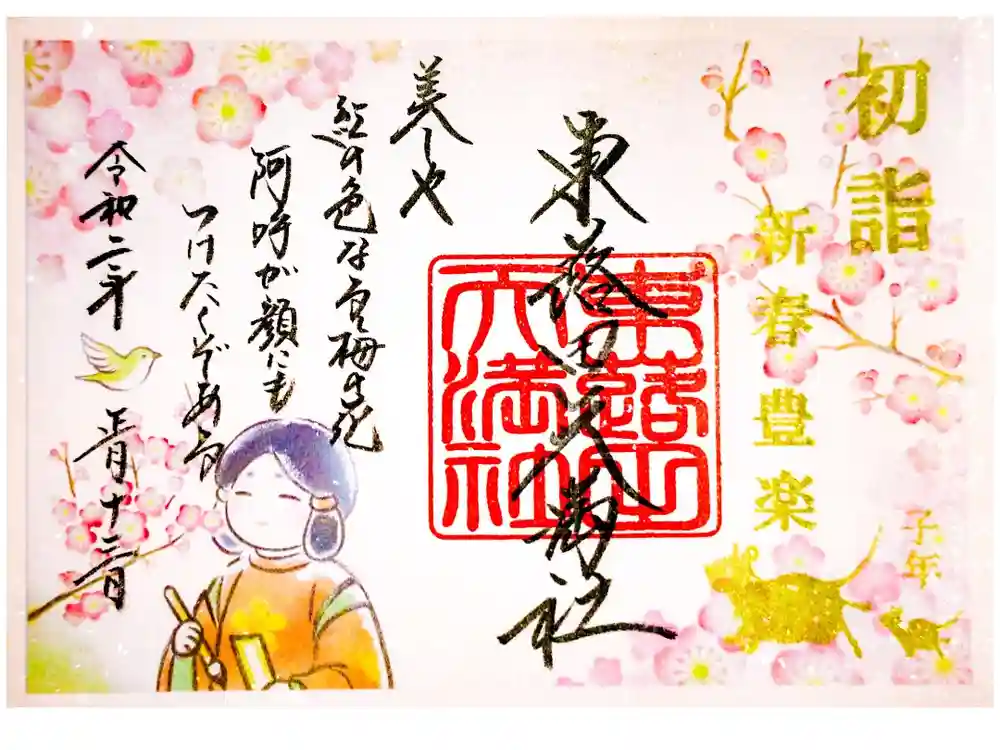 初詣
新春豊楽
子年
東蕗田天満社
東蕗田
天満社
美しや
紅の色なる梅の花
阿呼が顔にも
つけたくぞある
令和二年
正月十三日